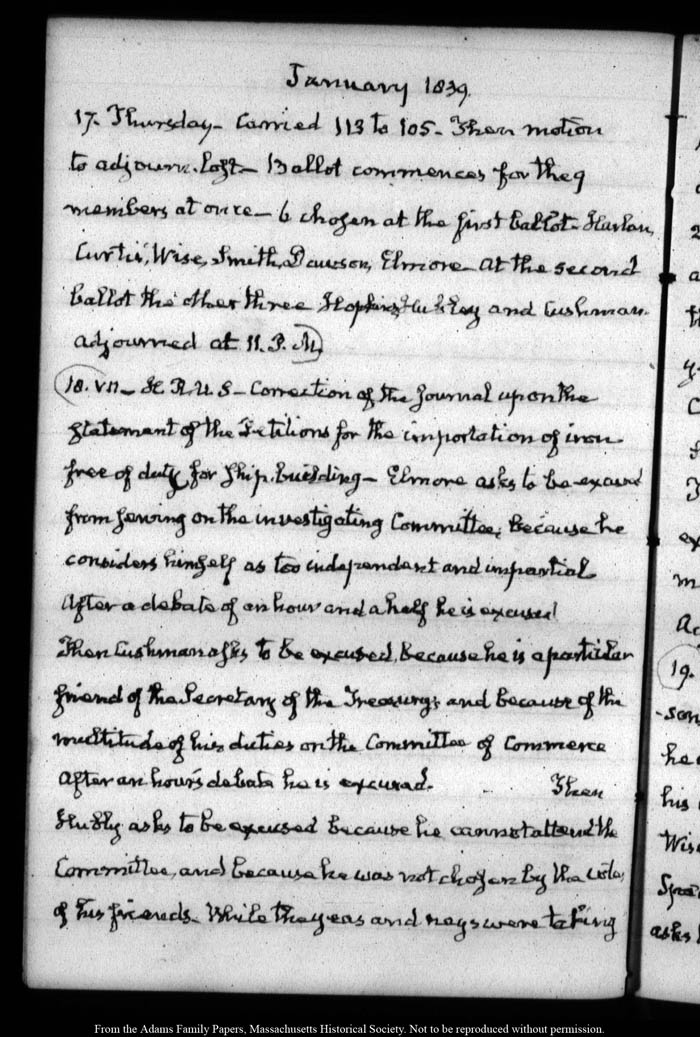 January 1839.
17. Thursday- Carried 113 to 105. Then motion
to adjourn. lost- Ballot commences for the 9
members at once- 6 chosen at the first ballot- Harlan,
Curtis, Wise, Smith, Dawson, Elmore- at the second
ballot the other three Hopkins, Hubley and Cushman
adjourned at 11. P.M.
18. VII- H. R. U. S- Correction of the Journal upon the
statement of the Petitions for the importation of iron
free of duty, for Ship. building- Elmore asks to be excused
from serving on the investigating Committee; because he
considers himself as too independant and impartial
After a debate of an hour and a half he is excused
Then Cushman asks to be excused, because he is a particular
friend of the Secretary of the Treasury; and because of the
multitude of his duties on the Committee of Commerce
After an hour's debate he is excused. Then
Hubley asks to be excused because he cannot attend the
Committee, and because he was not chosen by the votes
of his friends- While the yeas and nays were taking
2
a
th
y
C
ex
m
Ac
19.
-son
he
his
Wise
Spea
asks
From the Adams Family Papers, Massachusetts Historical Society. Not to be reproduced without permission.